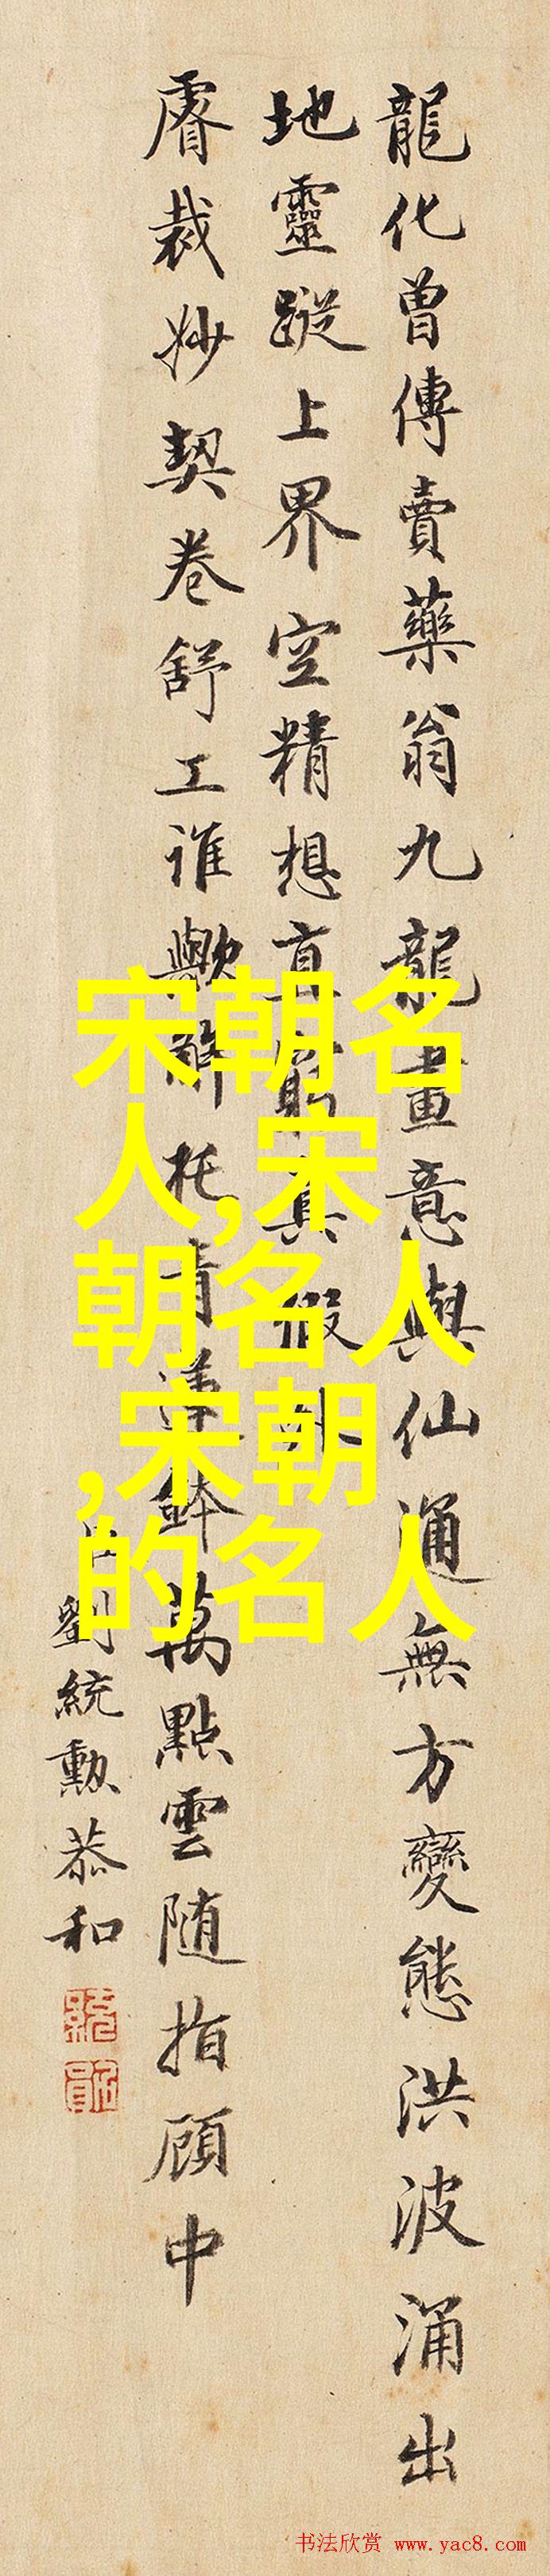 龍化曾傳賣藥翁九龍畫意與仙通無方變態洪波涌出
地靈蹤上界空精想真真假
睿裁妙契卷舒工誰歟解托青蓮鉢萬點雲随指顧中
劉統勳恭和
宋朝名
人,宋
朝名人
,宋朝
的名人
书法欣赏 www.yac8.com